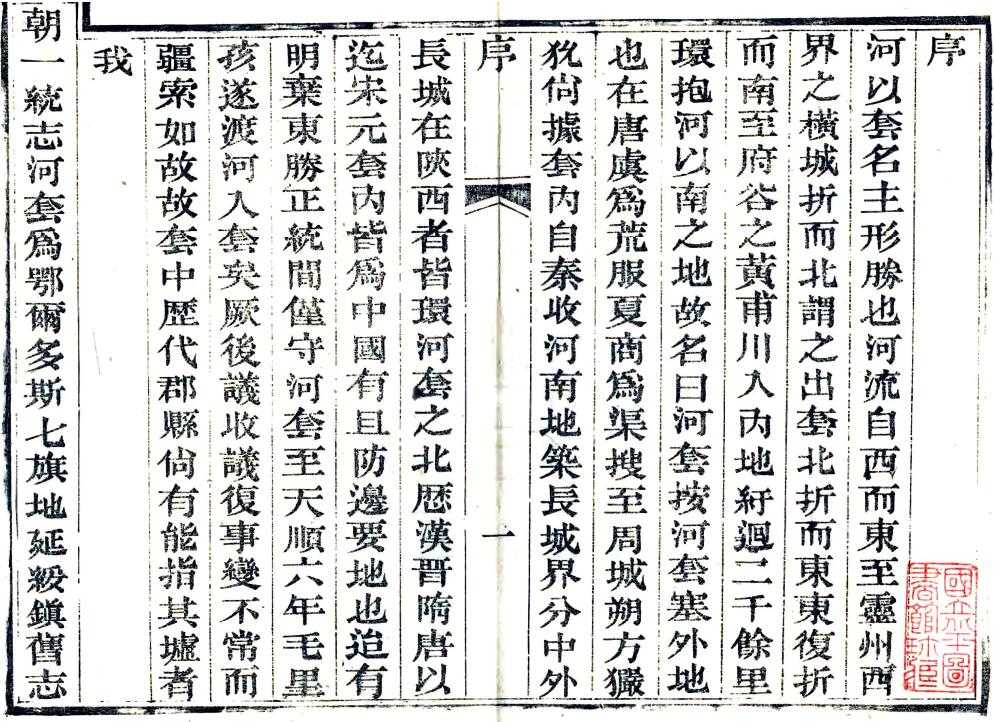 序
河以套名主形勝也河流自西而東至靈州西
界之橫城折而北謂之出套北折而東東復折
而南至府谷之黃甫川入內地紆迴二千餘里
環抱河以南之地故名曰河套按河套塞外地
也在唐虞爲荒服夏商爲渠搜至周城朔方玁
狁尙據套內自秦收河南地築長城界分中外
序
一
長城在陝西者皆環河套之北歷漢晉隋唐以
迄宋元套內皆爲中國有且防邊要地也迨有
明棄東勝正統間僅守河套至天順六年毛里
孩遂渡河入套矣厥後議收議復事變不常而
疆索如故故套中歷代郡縣尙有能指其墟者
我
朝一統志河套爲鄂爾多斯七旗地延綏鎭舊志